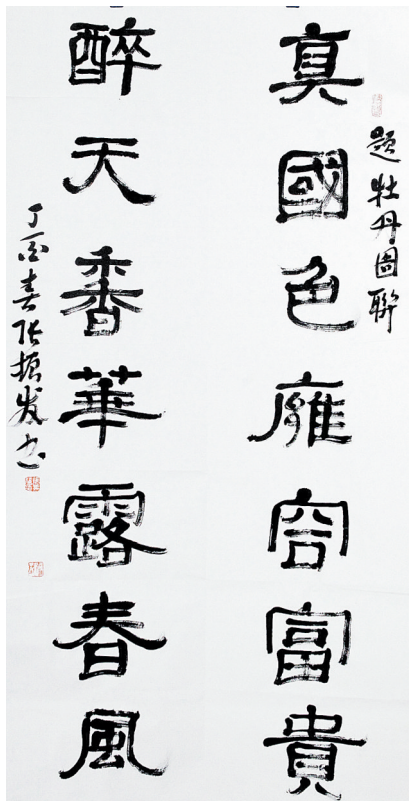 題牡丹圖聯
真國色雍容富貴
醉天香華露春風
丁酉春張振發書